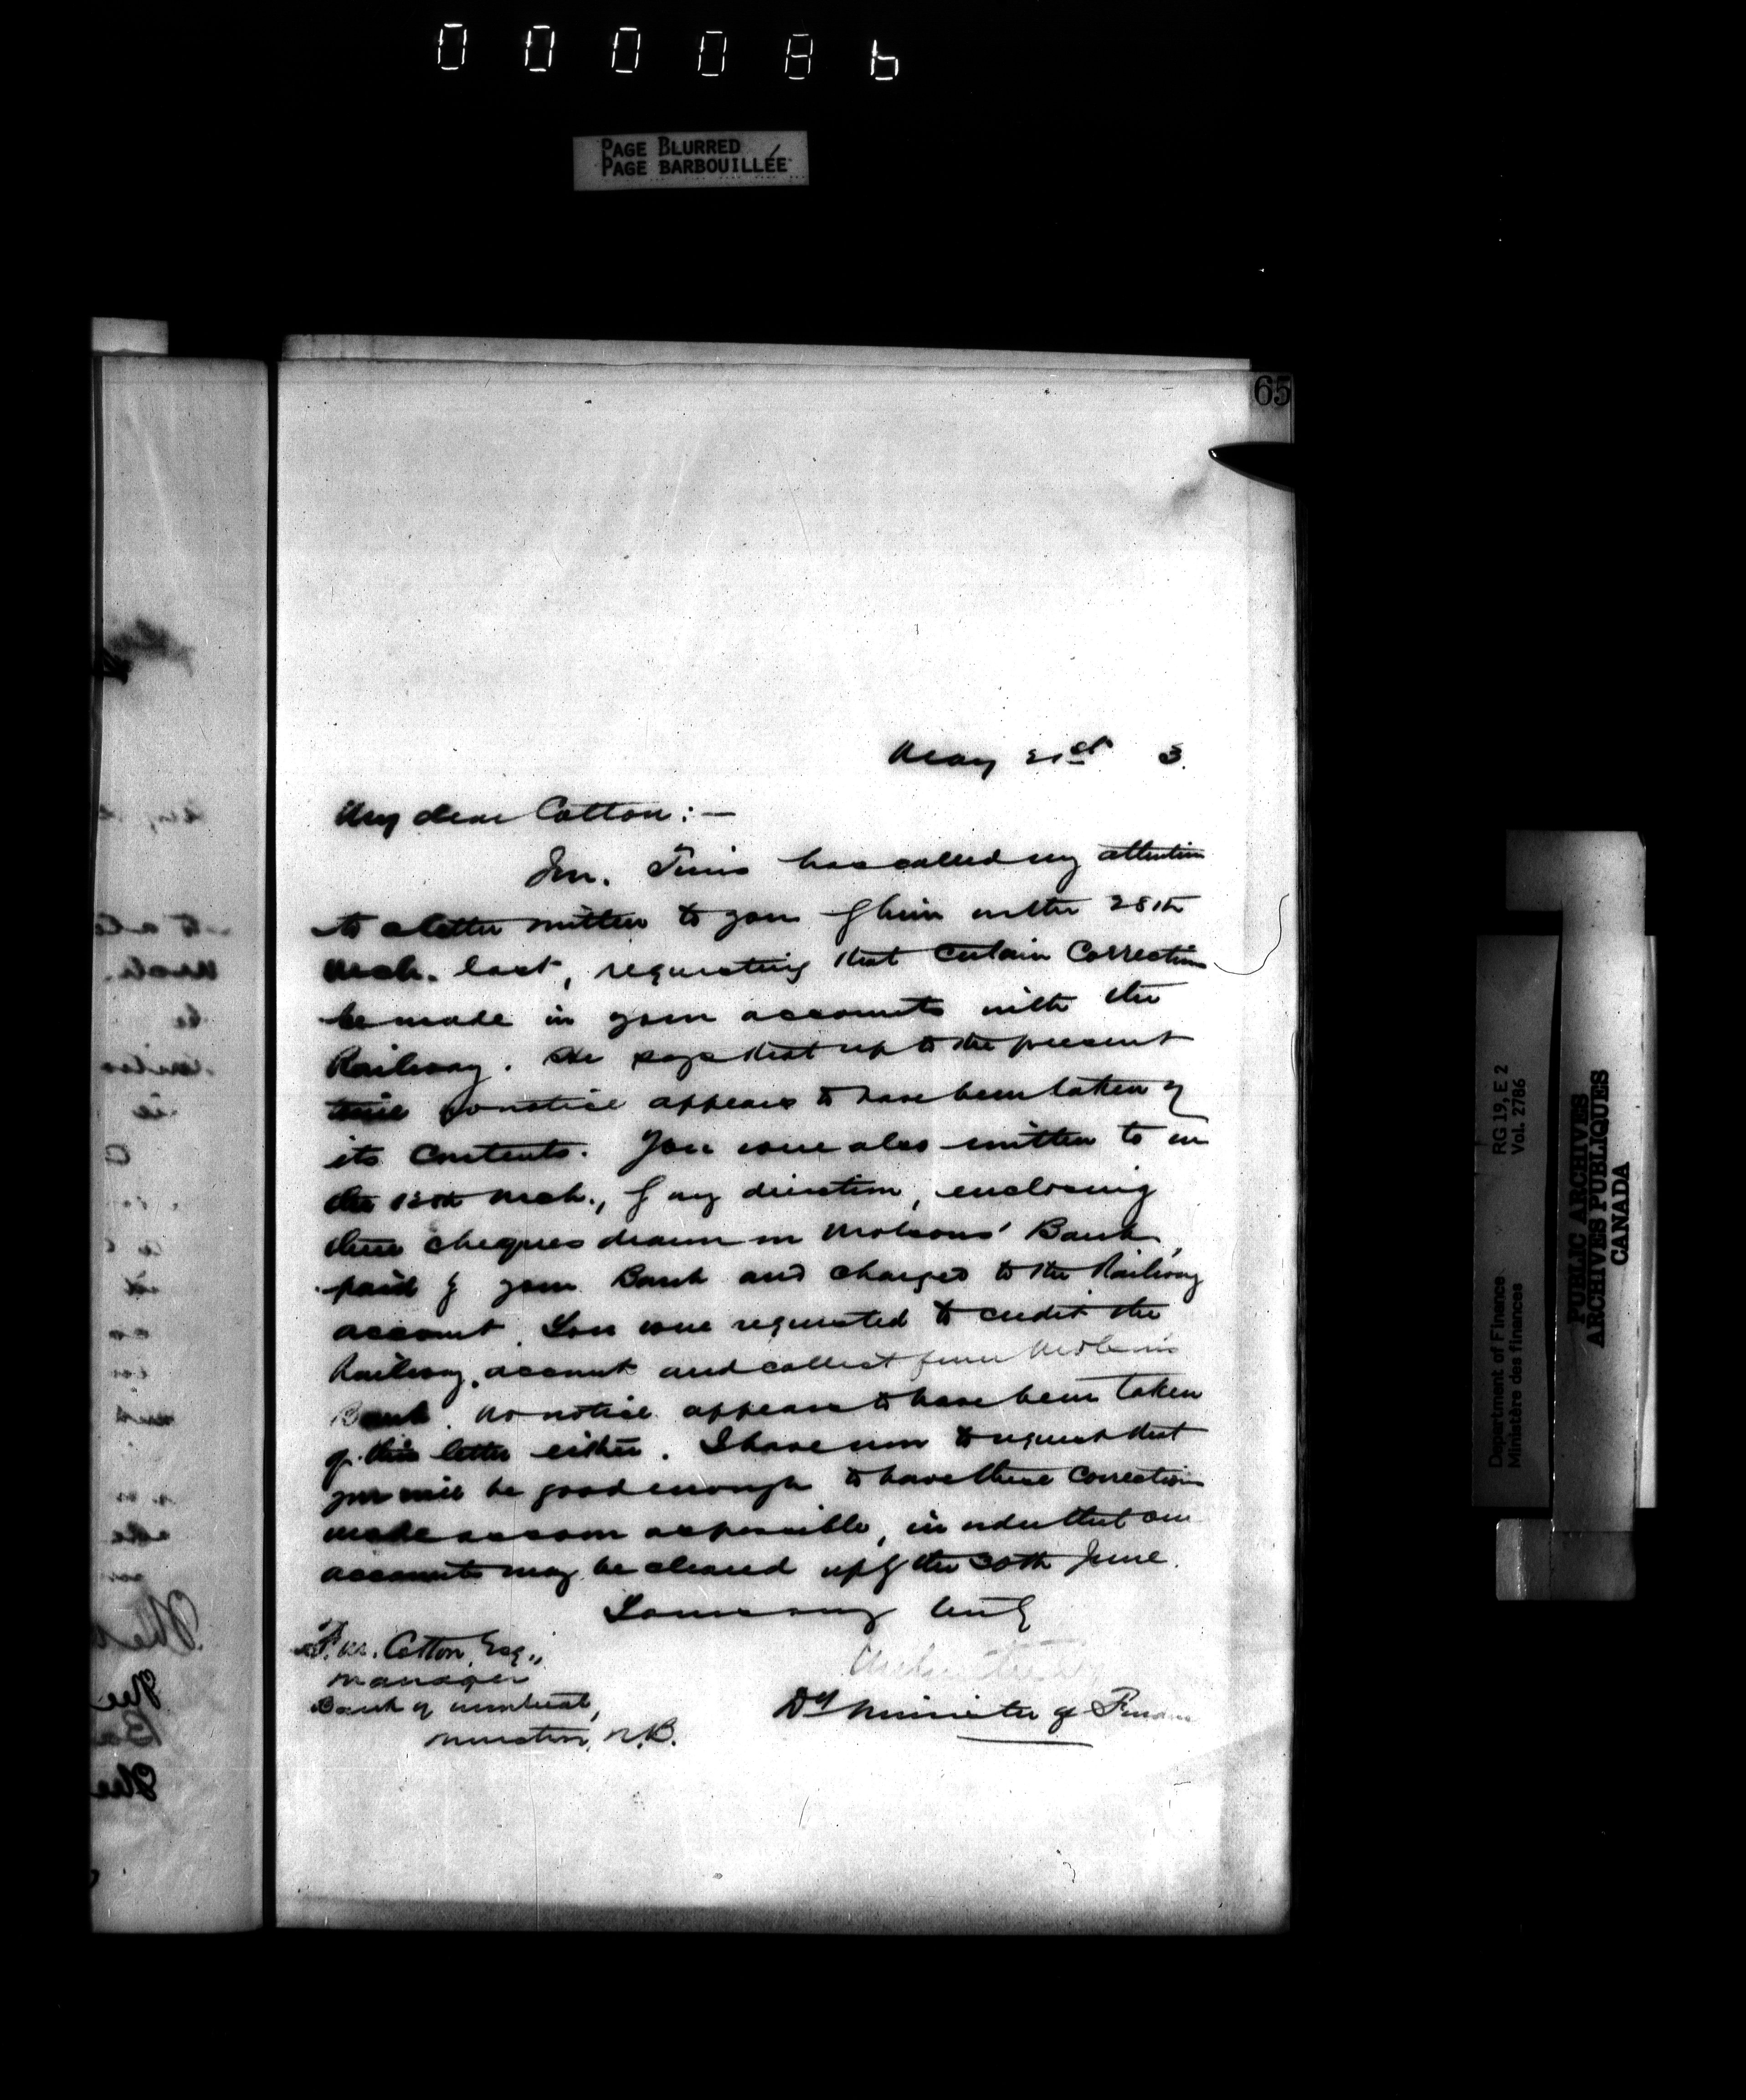 000086
PAGE BLURRED
PAGE BARBOUILLÉE
65
May 21st 3.
My dear Cotton:—
Mr. Tims has called my attention
to a letter written to you by him on the 28th
Mch. last, requesting that certain corrections
be made in your accounts with the
Railway. He says that up to the present
time no notice appears to have been taken of
its contents. You were also written to on
the 13th Mch., by my direction, enclosing
three cheques drawn on Molsons' Bank,
paid by your Bank and charged to the Railway
account. You were requested to credit the
Railway account and collect from Molsons
Bank. No notice appears to have been taken
of this letter either. I have now to request that
you will be good enough to have these corrections
made as soon as possible, in order that our
accounts may be cleared up by the 30th June.
Yours very truly
Dy Minister of Finance
Cotton, Esq.,
Manager
Bank of Montreal,
Moncton, N.B.
Department of Finance RG 19, E 2
Ministère des finances Vol. 2786
PUBLIC ARCHIVES
ARCHIVES PUBLIQUES
CANADA